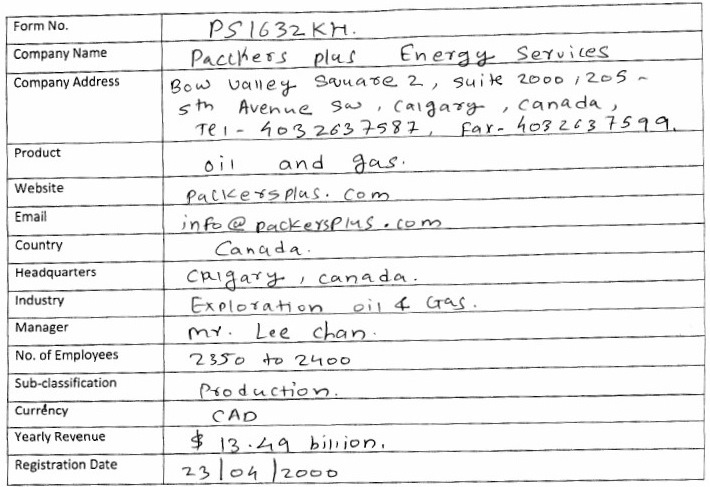 Form No. PS1632KH.
Company Name Pacckers plus Energy Services
Company Address Bow valley Square 2, suite 2000, 205 -
5th Avenue sw, Calgary, Canada,
Tel - 4032637587, Fax- 4032637599.
Product oil and gas.
Website packersplus.com
Email info@packersplus.com
Country Canada.
Headquarters Calgary, Canada.
Industry Exploration oil & Gas.
Manager mr. Lee chan.
No. of Employees 2350 to 2400
Sub-classification Production.
Currency CAD
Yearly Revenue $ 13.49 billion.
Registration Date 23/04/2000